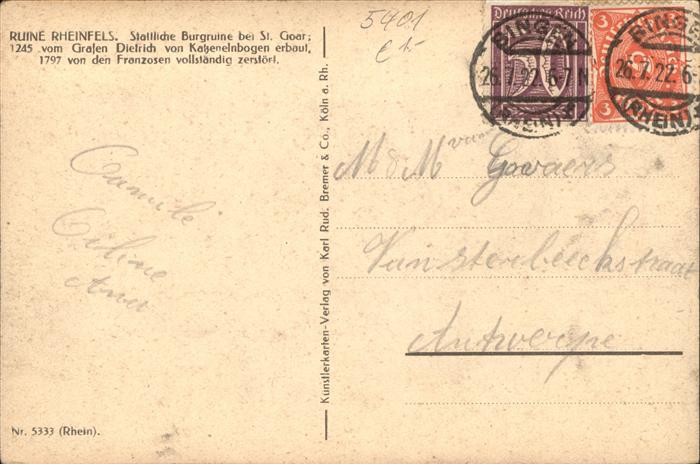 RUINE RHEINFELS. Stattliche Burgruine bei St. Goar;
1245 vom Grafen Dietrich von Katzenelnbogen erbaut,
1797 von den Franzosen vollständig zerstört.
5401
Deutsches Reich
50
3
3
BINGEN
26.7.22. 6-7 N
(RHEIN)
BINGEN
26.7.22. 6
(RHEIN)
M & M Govaers
Vansterbeeckstraat
Antwerpe
Camille
Celine
Künstlerkarten-Verlag von Karl Rud. Bremer & Co., Köln a. Rh.
Nr. 5333 (Rhein).